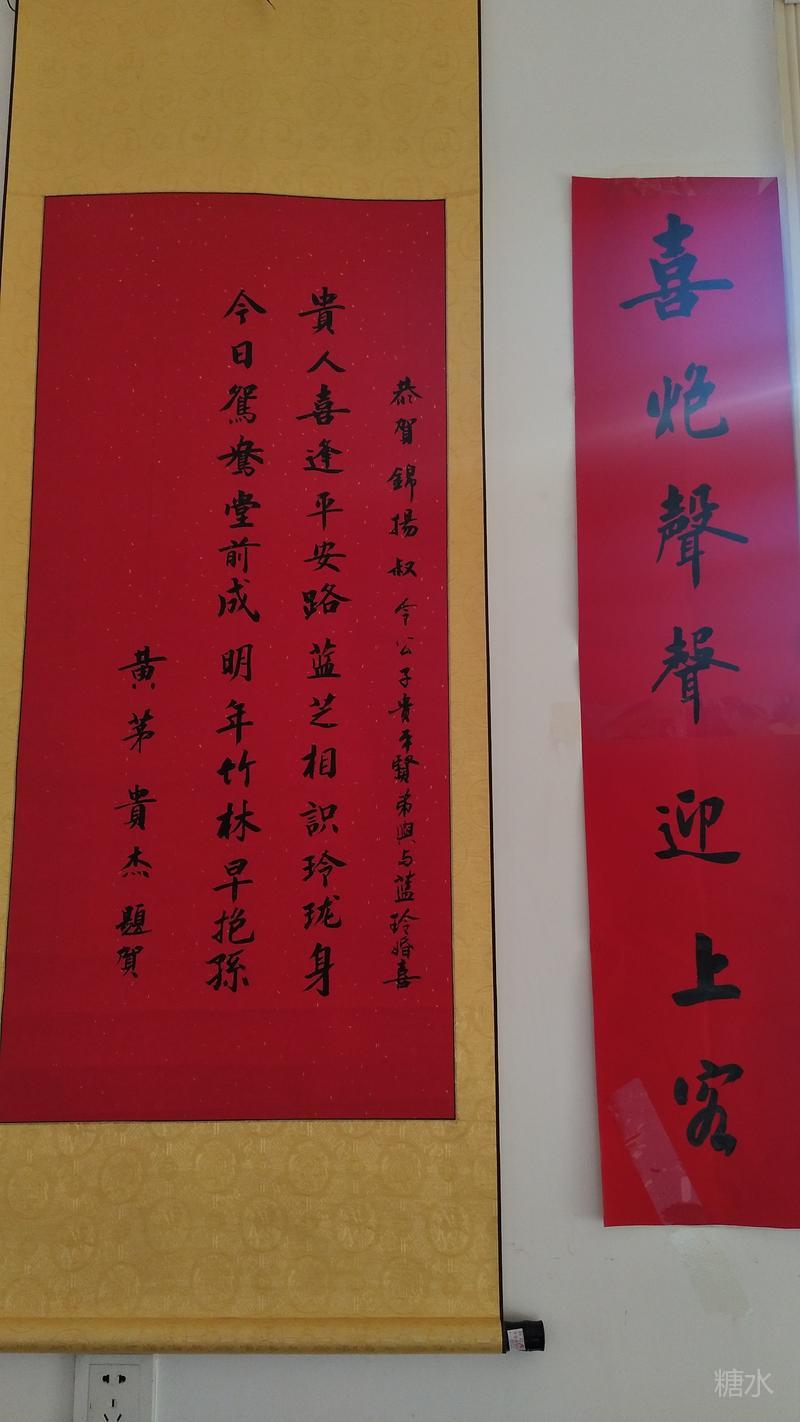 喜炮聲聲迎上客
恭賀錦揚叔令公子貴平賢弟與与蓝玲婚喜
貴人喜逢平安路蓝芝相識玲珑身
今日鴛鴦堂前成明年竹林早抱孫
黄茅貴杰題賀
糖水